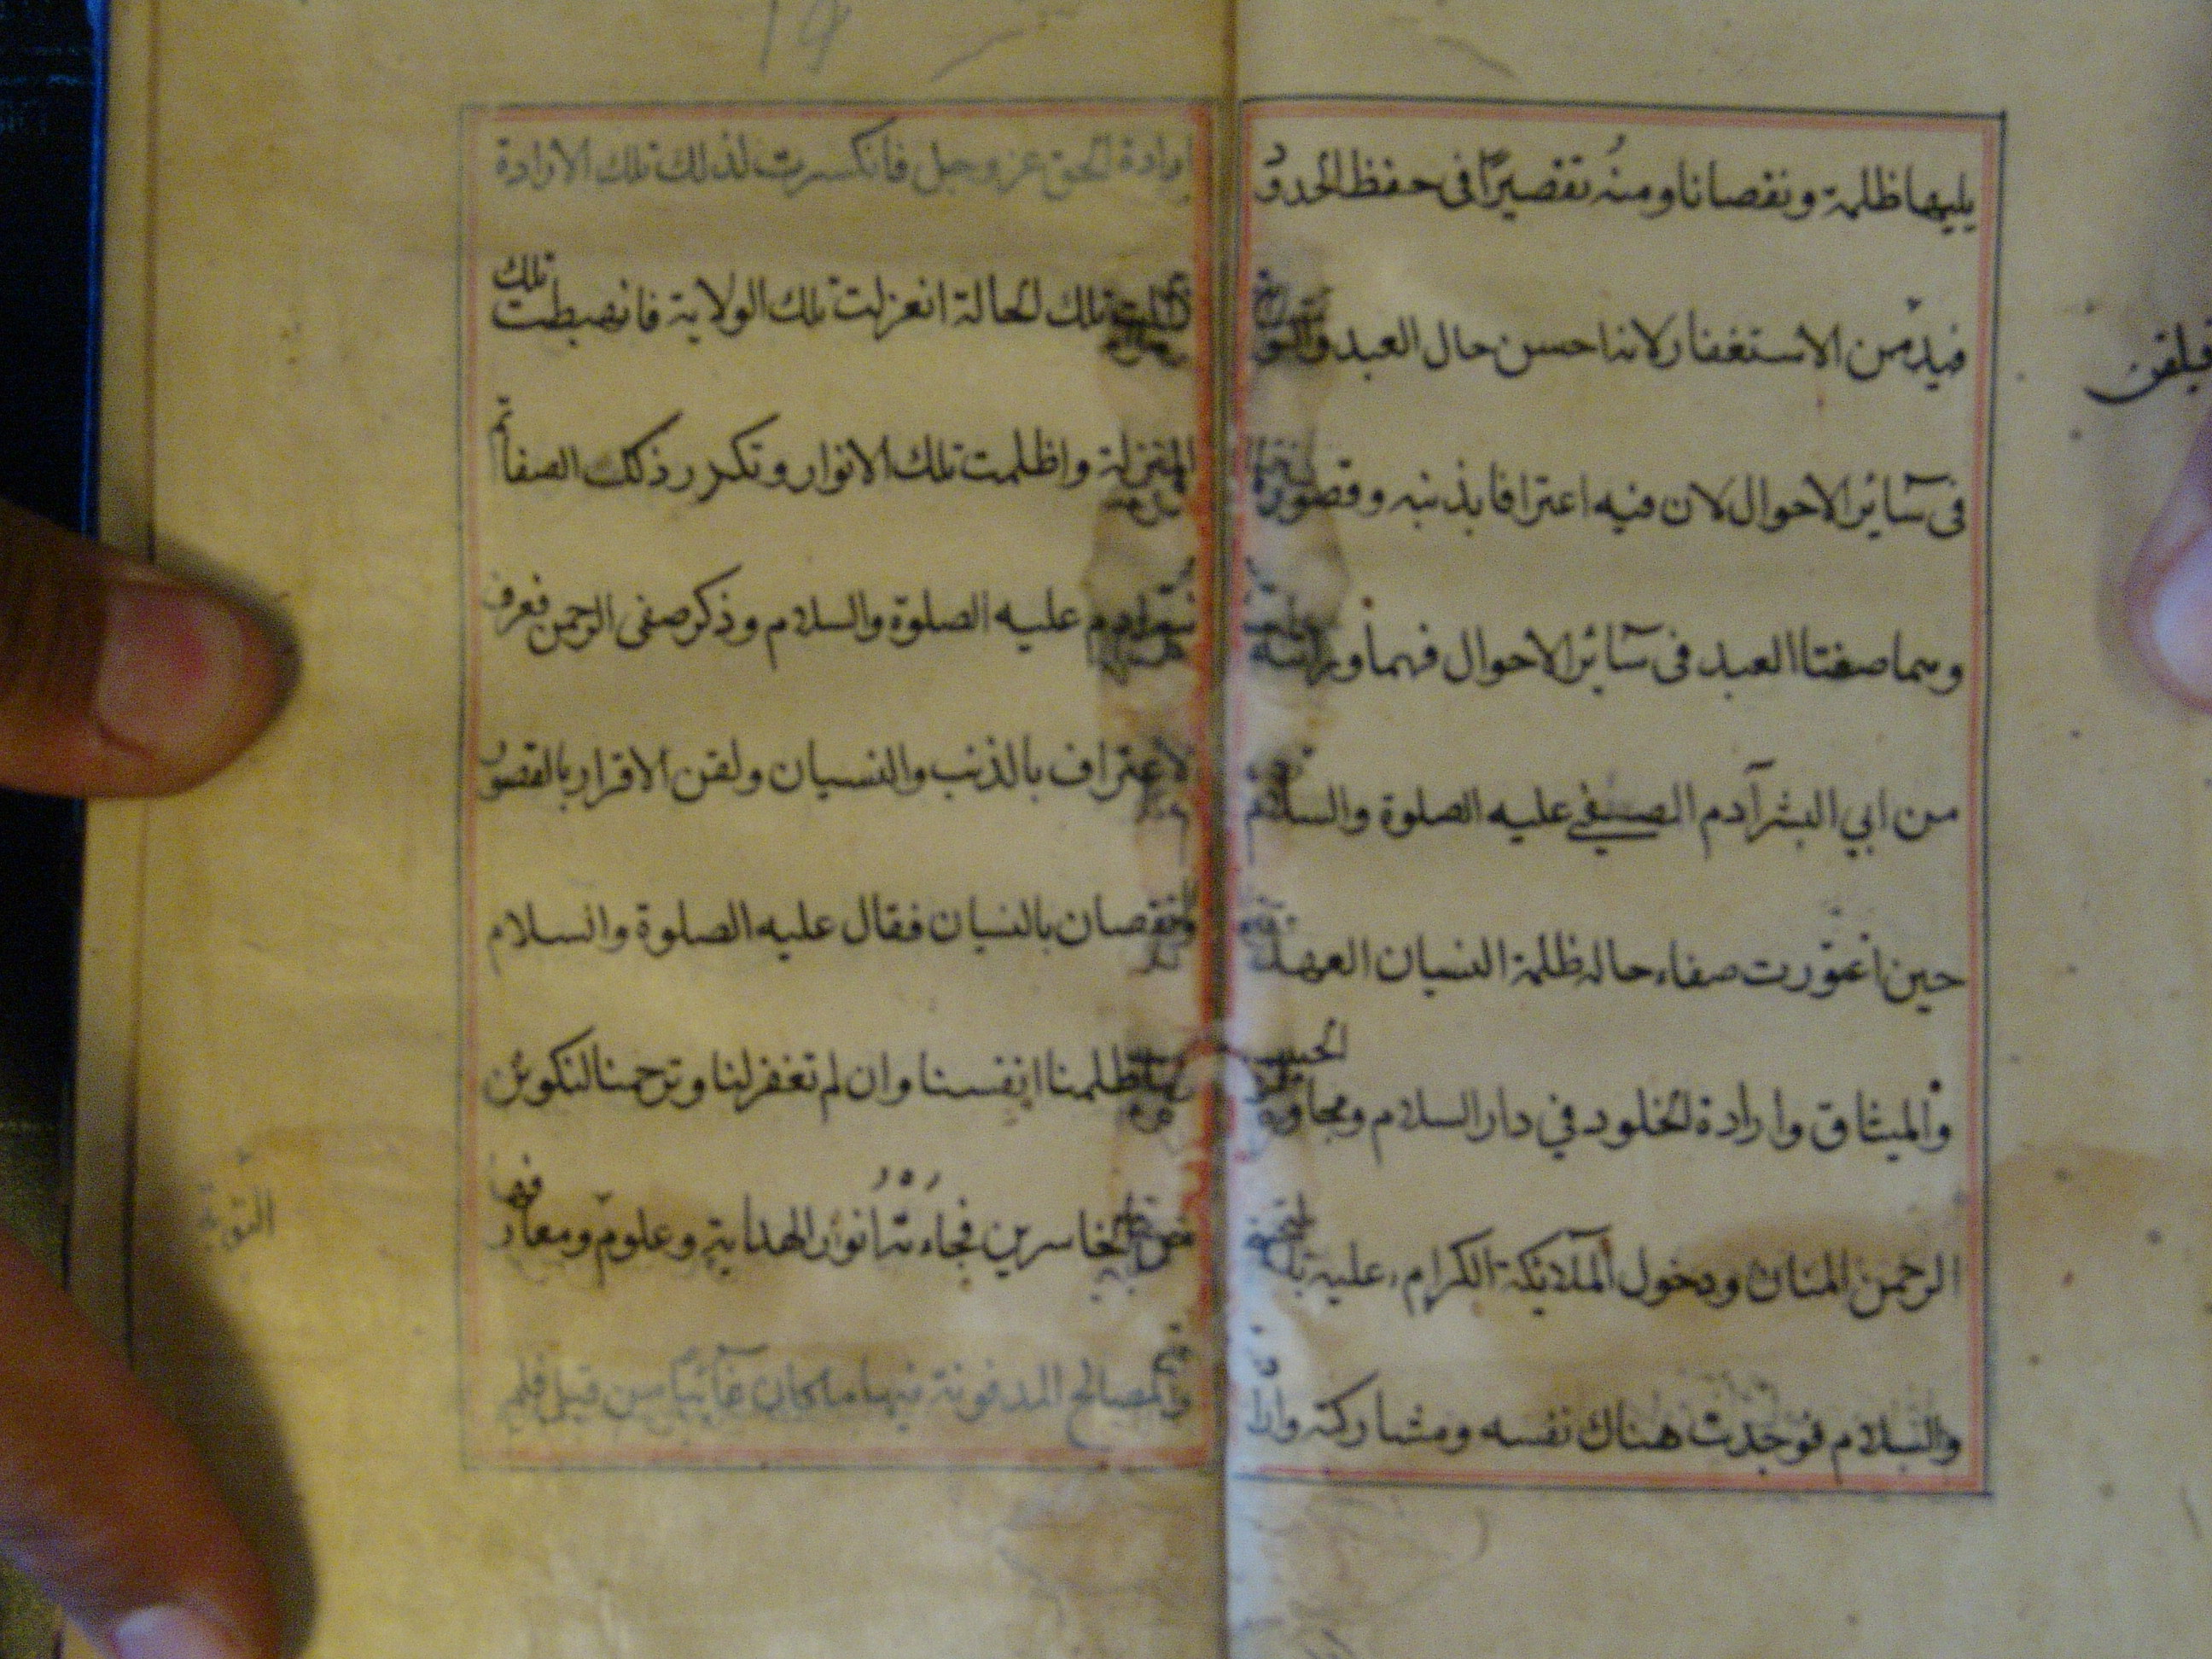 يليها ظلمة ونقصانا ومنه تقصيرًا في حفظ الحدود
فيلقن
من الاستغفار لانها حسن حال العبد
في سائر الاحوال لان فيه اعترافا بذنبه وقصوره
وهما صفتا العبد في سائر الاحوال فهما وراثة
من ابي البشر آدم الصفي عليه الصلوة والسلام
حين اعتورت صفاء حاله ظلمة النسيان العهد
والميثاق وارادة الخلود في دار السلام ومجاورة الحبيب
الرحمن المنان ودخول الملآئكة الكرام عليه
والسلام فوجدت هناك نفسه ومشاركة
19
ارادة الحق عز وجل فانكسرت لذلك تلك الارادة
تلك الحالة انعزلت تلك الولاية فانهبطت تلك
المنزلة واظلمت تلك الانوار وتكدر ذلك الصفا ثم
عليه الصلوة والسلام وذكر صفى الرحمن فعرف
الاعتراف بالذنب والنسيان ولقن الاقرار بالقصور
والنقصان بالنسيان فقال عليه الصلوة والسلام
ظلمنا انفسنا وان لم تغفر لنا وترحمنا لنكونن
الخاسرين فجاءته انوار الهداية وعلوم ومعارف
التوبة
والمصالح المدفونة فيها ما كان غائبًا من قبل فلم